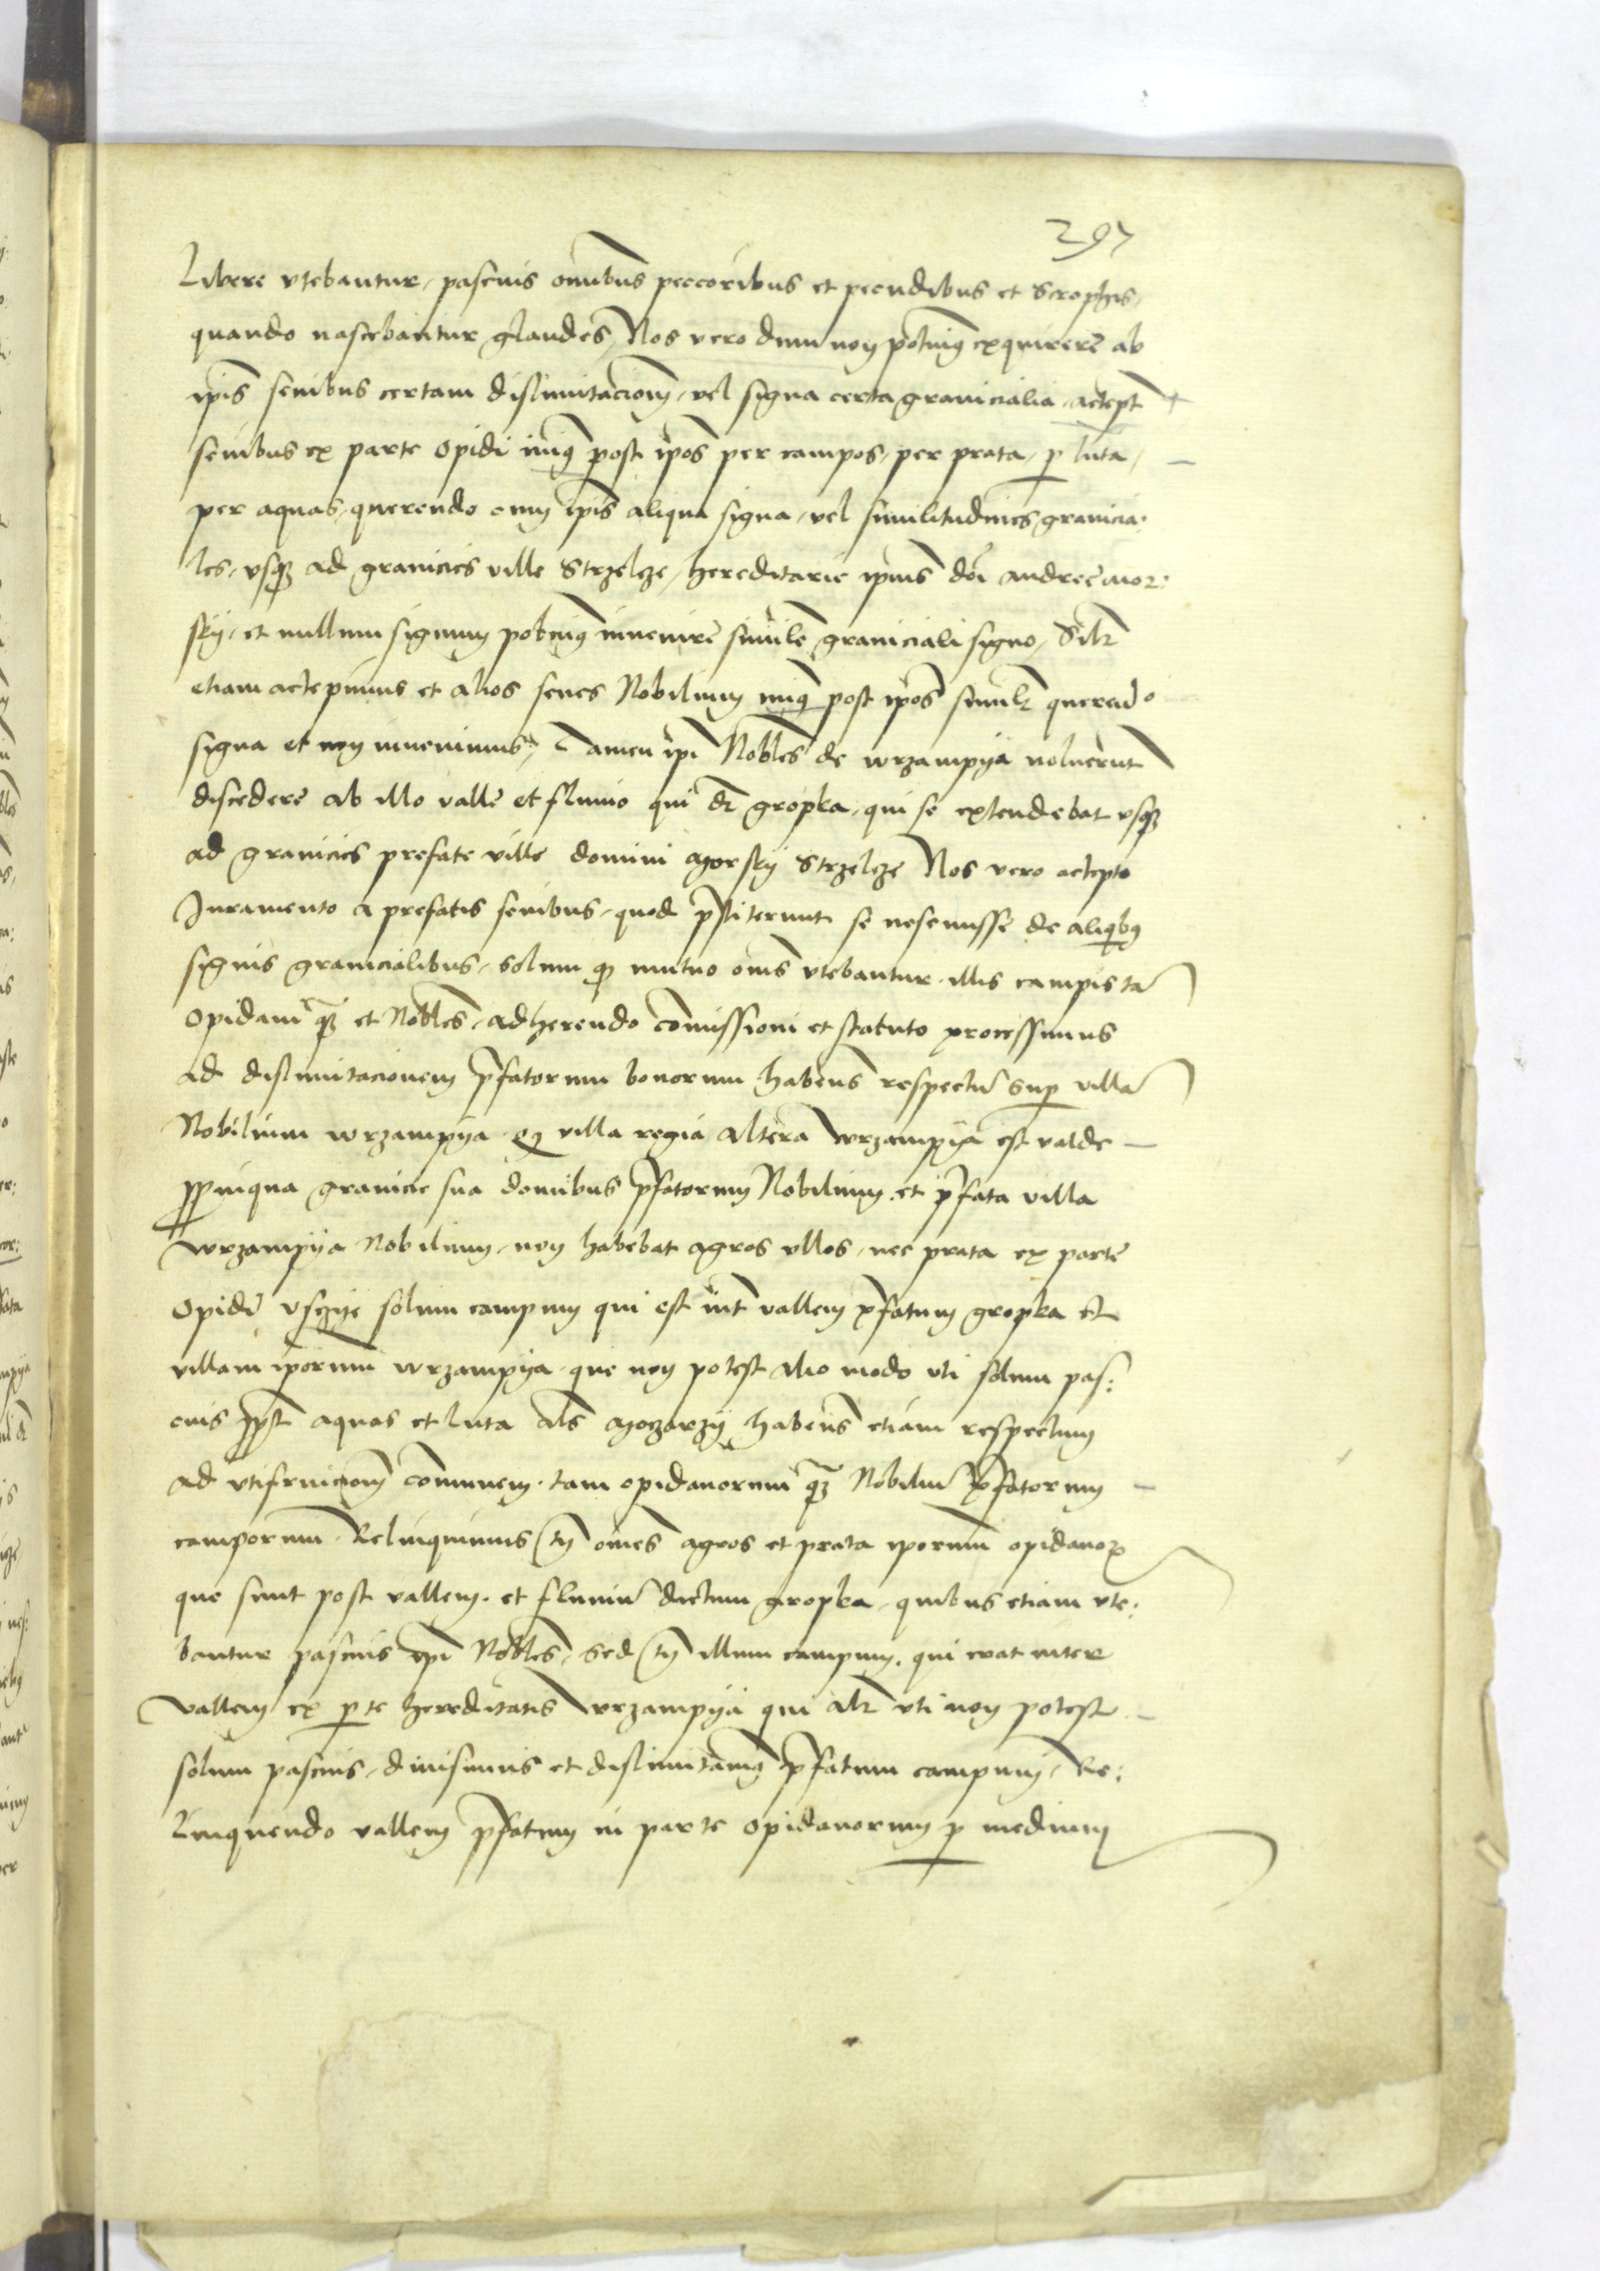 297
Libere vtebantur, pascuis om̄ibus peccoribus et pecudibus et scrophis,
quando nascebantur glandes, Nos vero dum non potuimꝰ exquirere ab
ip̄is senibus certam dislimitacionem, vel signa certa granicialia, accept̄
senibus ex parte opidi iuimꝰ post ip̄os per campos, per prata, ꝑ luta,
per aquas, querendo cum ip̄is aliqua signa, vel similitudines, granicia:
les, vsqꝫ ad granicies ville Strzelcze, hereditarie ip̄ius dn̄i andree mor:
skij, et nullum signum potuimꝰ inuenire simile graniciali signo, Silr̄
etiam accepimus et alios senes Nobilium iuimꝰ post ip̄os similr̄ querēdo
signa et non inuenimus, Tamen ip̄i Nobiles de wrzampija noluerunt
discedere ab illo valle et fluuio qui dr̄ gropka, qui se extendebat vsqꝫ
ad granicies prefate ville domini morskij Strzelcze Nos vero accepto
Juramento a prefatis senibus, quod p̄stiterunt se nesciuisse de aliqibꝰ
signis granicialibus, solum qꝫ mutuo om̄s vtebantur, illis campis tā
opidani qꝫ et Nobles, adherendo com̄issioni et statuto processimus
ad dislimitacionem p̄fatorum bonorum habens respectū sup villā
Nobilium wrzampija qꝫ villa regia altera wrzampija est valde
ꝓpinqua granicie sua domibus p̄fatorum Nobilium, et p̄fata villa
wrzampija Nobilium, non habebat agros vllos, nec prata ex parte
opidi vsczije solum campum qui est int̄ vallem p̄fatum gropka et
villam ip̄orum wrzampija, que non potest alio modo vti solum pas:
cuis ꝓpt̄ aquas et luta als moczarzij habens etiam respectum
ad vtifruicionem communem, tam opidanorum qꝫ Nobiliū p̄fatorum
camporum, Relinquimus tn̄ om̄es agros et prata ip̄orum opidanoꝝ
que sunt post vallem, et fluuiū dictum gropka, quibus etiam vte:
bantur pascuis ip̄i Nobles, Sed tn̄ illum campum, qui erat inter
vallem ex ꝑte hereditatis wrzampija qui alr̄ vti non potest
solum pascuis, diuisimus et dislimitauimꝰ p̄fatum campum, Re:
linquendo vallem p̄fatum in parte opidanorum ꝑ medium